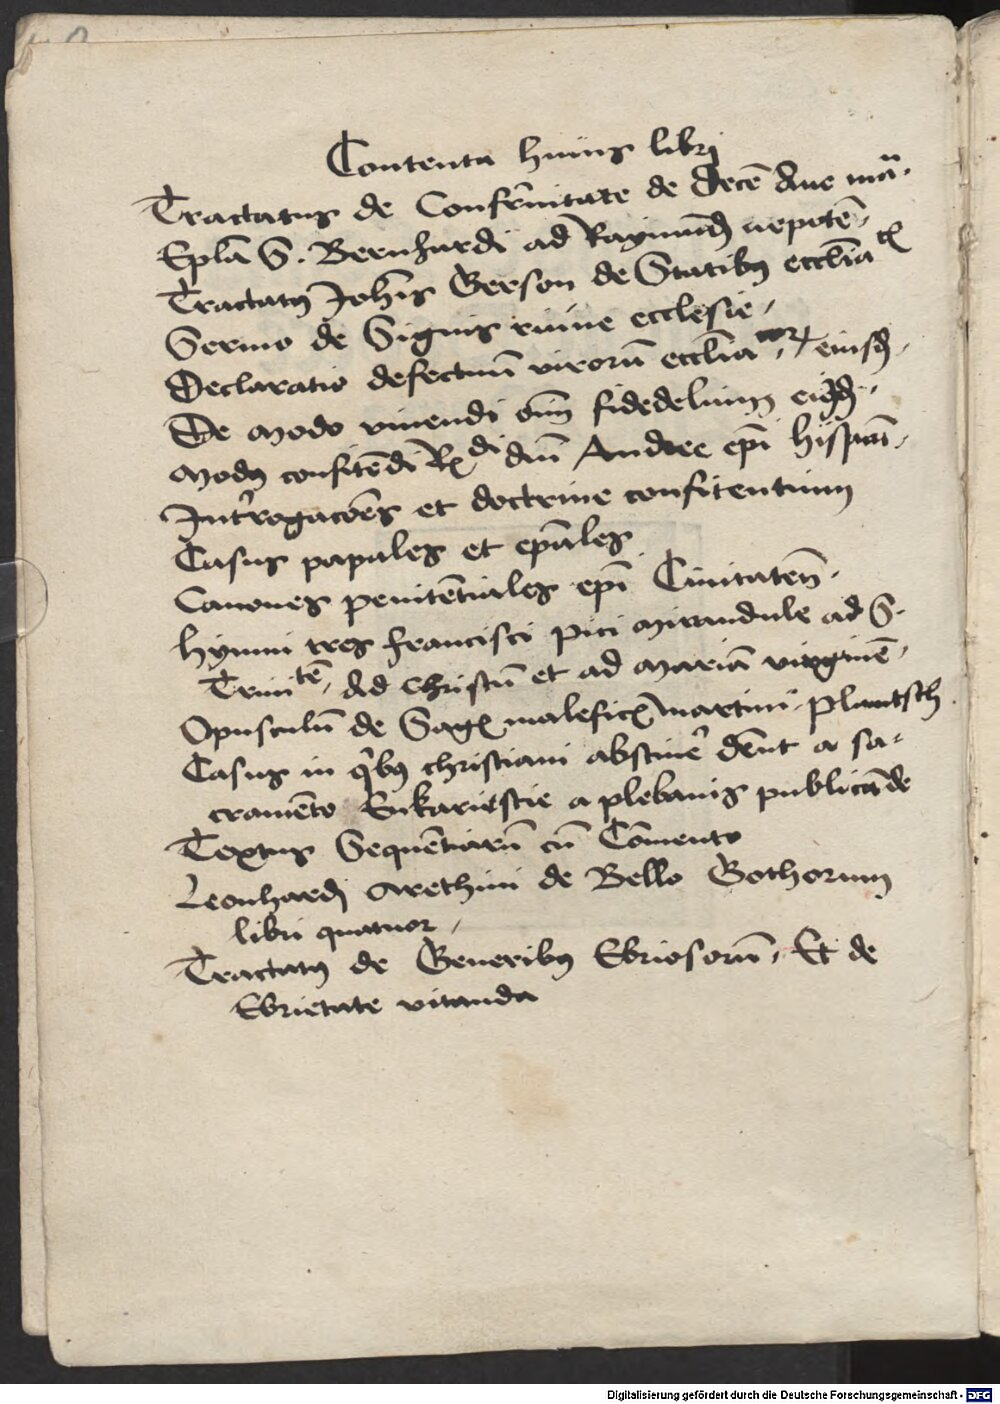 Contenta huius libri
Tractatus de Confr̄nitate de Decē Ave mā.
Epl̄a S. Bernhardi ad Raymundū nepotē.
Tractatꝯ Joh̄is Gerson de Statibꝯ eccl̄iaticꝭ
Sermo de Signis ruine ecclesie.
Declaratio defectuū virorū eccl̄iaᵗⁱᶜᵒʳꝝ eiusdꝫ.
De modo vivendi om̄ fidedelium eiusdꝫ.
Modꝯ confitēdi Rᵈⁱ dn̄i Andree ep̄i hispan̄.
Int̄rogacōes et doctrine confitentium
Casus papales et ep̄ales
Canones penitētiales ep̄i Civitateñ.
hymni tres francisci pici Mirandule ad S.
Triniᵗᵉ̄. Ad Christū et ad Mariā virginē.
Opusculū de Sagꝭ maleficꝭ Martini Plantsch.
Casus in qͥbꝯ christiani abstinēr dēnt a sa-
cramēto Eukaristie a plebanis publicāde
Textus Sequētiarū cū Cōmento
Leonhardj Arethini de Bello Gothorum
libri quatuor.
Tractatꝯ de Generibꝯ Ebriosorū. Et de
Ebrietate vitanda
Digitalisierung gefördert durch die Deutsche Forschungsgemeinschaft - DFG